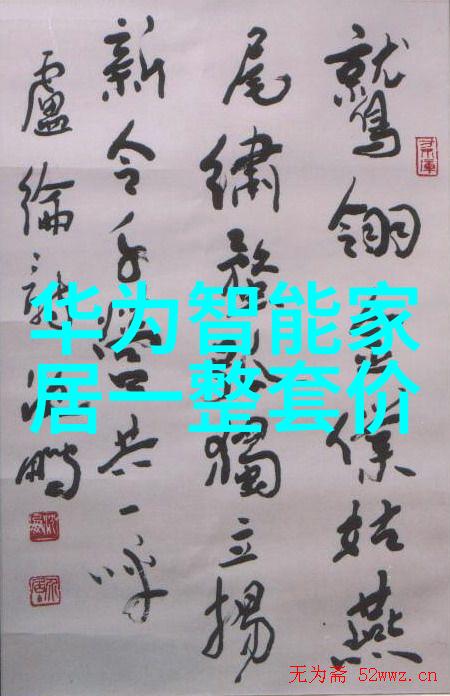 鷲翎僕姑燕
尾繡蝥弧獨立揚
新令千營共一呼
盧綸鵬
华为智能家
居一整套价
无为斋 52wwz.cn